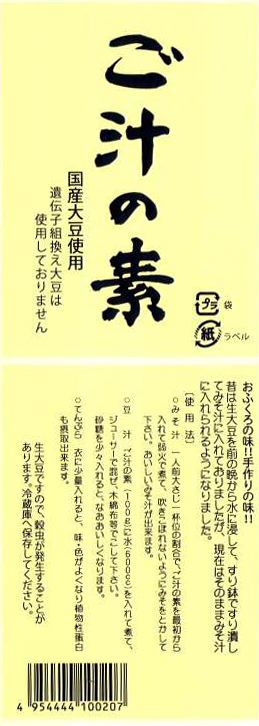 ご汁の素
国産大豆使用
遺伝子組換え大豆は
使用しておりません
プラ
袋
紙
ラベル
おふくろの味!!手作りの味!!
昔は生大豆を前の晩から水に浸して、すり鉢ですり潰し
てみそ汁に入れておりましたが、現在はそのままみそ汁
に入れられるようになりました。
〔使用法〕
○みそ汁 一人前大さじ一杯位の割合で、ご汁の素を最初から
入れて弱火で煮て、吹きこぼれないようにみそをとかして
下さい。おいしいみそ汁が出来ます。
○豆汁 ご汁の素(100g)に水(600cc)を入れて煮て、
ジューサーで混ぜ、木綿布等でこして下さい。
砂糖を少々入れると、なおおいしくなります。
○てんぷら 衣に少量入れると、味・色がよくなり植物性蛋白
も摂取出来ます。
生大豆ですので、穀虫が発生することが
あります。冷蔵庫へ保存してください。
4 954444 100207